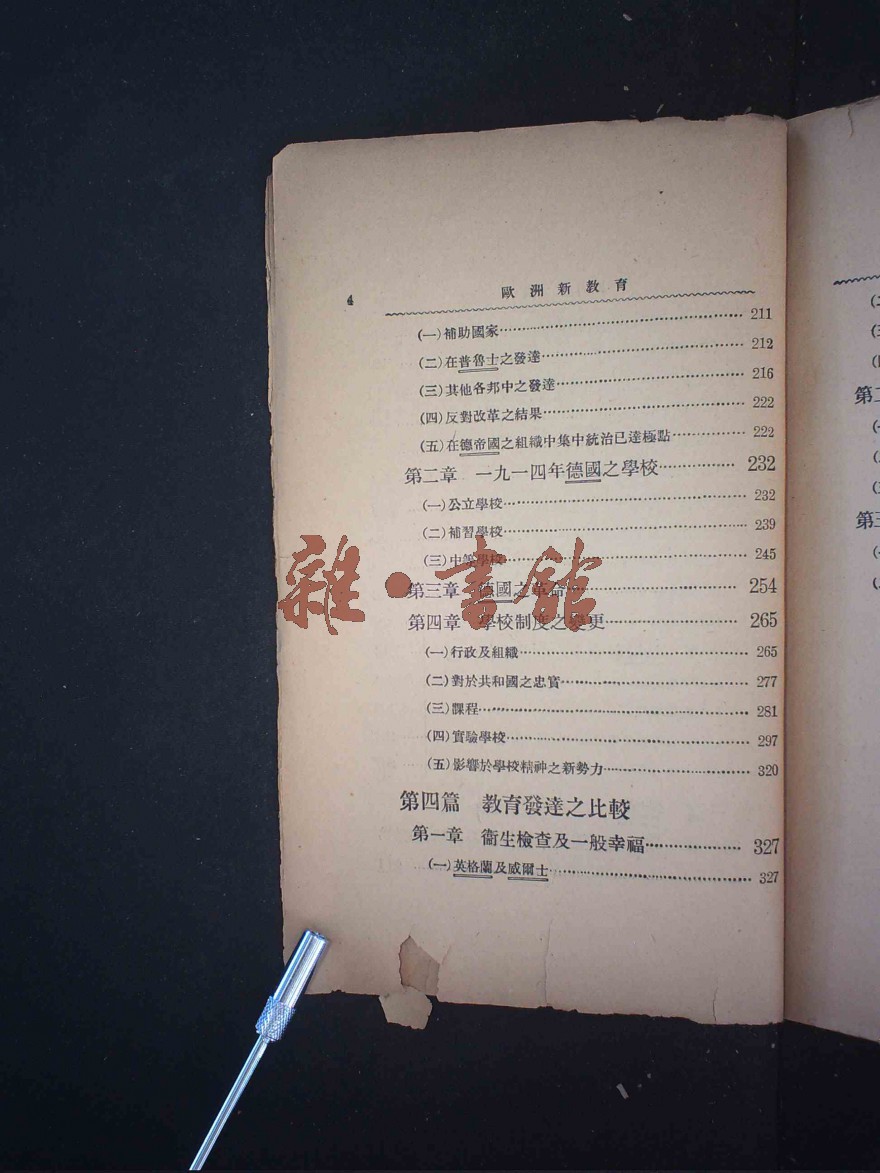 4 歐洲新教育
(一)補助國家 211
(二)在普魯士之發達 212
(三)其他各邦中之發達 216
(四)反對改革之結果 222
(五)在德帝國之組織中集中統治已達極點 222
第二章 一九一四年德國之學校 232
(一)公立學校 232
(二)補習學校 239
(三)中等學校 245
第三章 德國之革命 254
第四章 學校制度之變更 265
(一)行政及組織 265
(二)對於共和國之忠實 277
(三)課程 281
(四)實驗學校 297
(五)影響於學校精神之新勢力 320
第四篇 教育發達之比較
第一章 衞生檢查及一般幸福 327
(一)英格蘭及威爾士 327
雜·書館
第二
第三